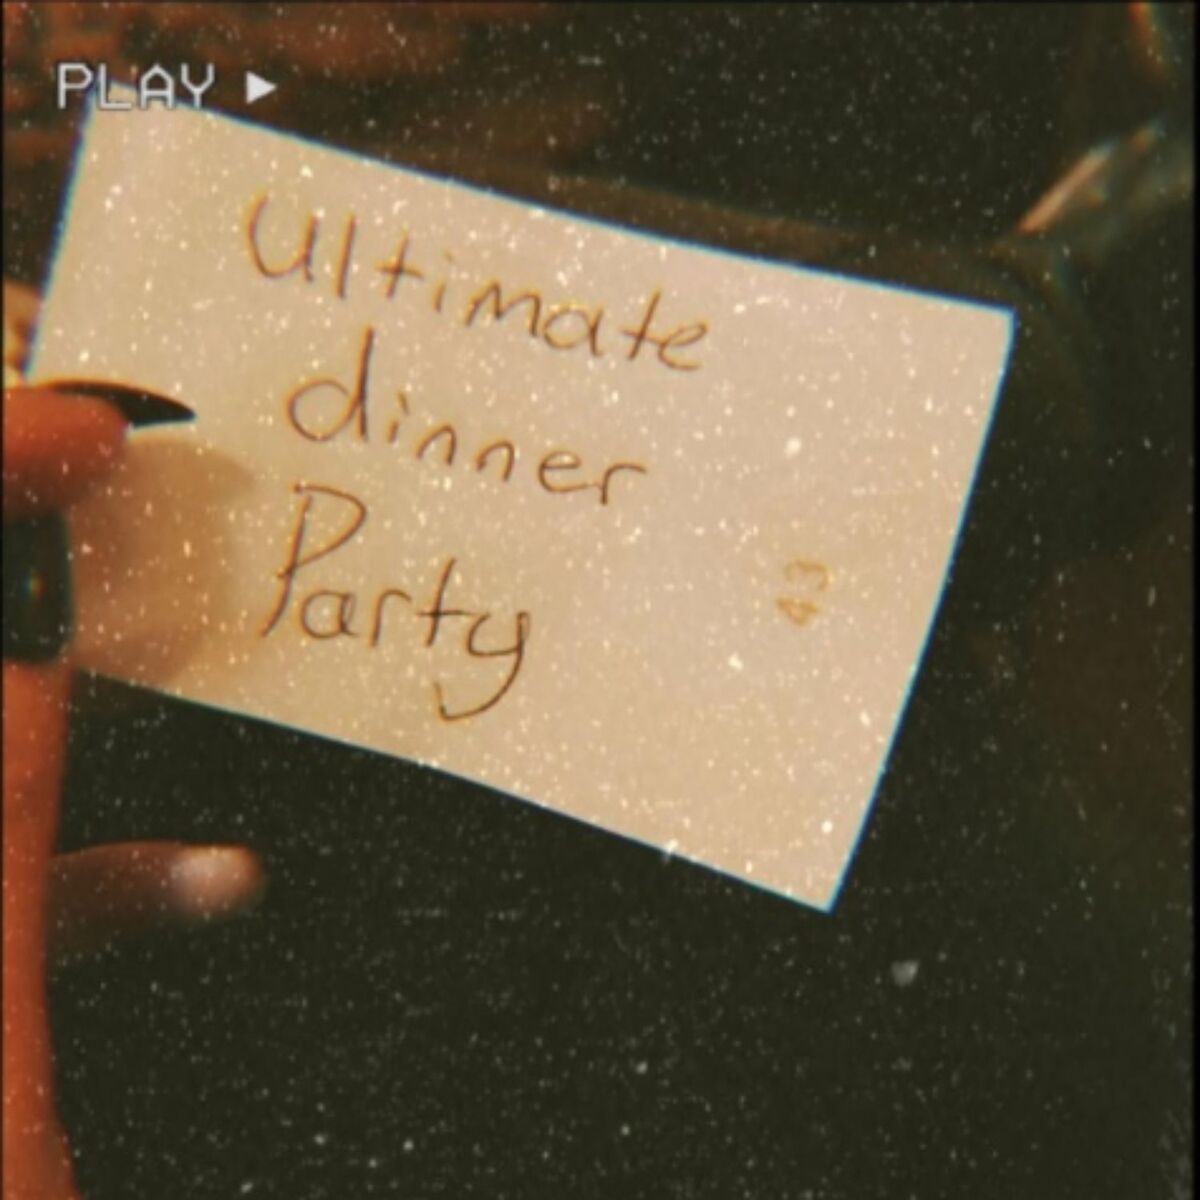 PLAY
Ultimate
dinner
Party
43